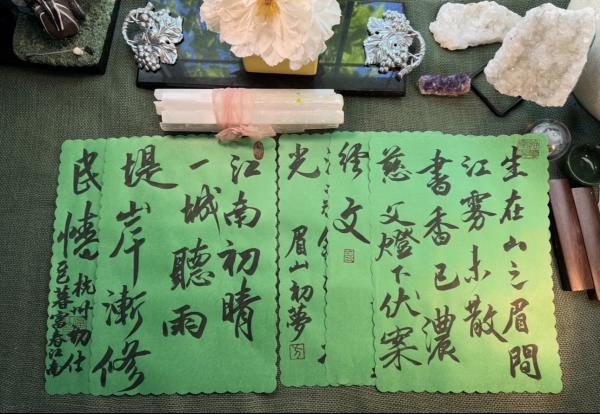 生在山之眉間
江霧未散
書香已濃
慈父燈下伏案
經文
光
眉山初夢
江南初晴
一城聽雨
堤岸漸修
民
杭州初仕
富春江南